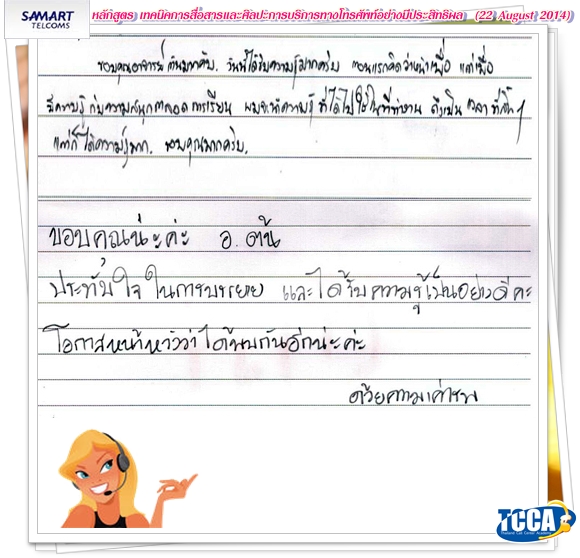 SAMART
TELCOMS
หลักสูตร เทคนิคการสื่อสารและศิลปะการบริการทางโทรศัพท์อย่างมีประสิทธิผล (22 August 2014)
ขอบคุณอาจารย์ต้นมากครับ. วันนี้ได้รับความรู้มากครับ ตอนแรกคิดว่าน่าเบื่อ แต่เมื่อ
มีความรู้กับความสนุกตลอดการเรียน ผมจะนำความรู้ที่ได้ไปใช้ในที่ทำงาน ถึงเป็นเวลาที่สั้นๆ
แต่ก็ได้ความรู้มาก. ขอบคุณมากครับ.
ขอบคุณน่ะค่ะ อ. ต้น
ประทับใจในการบรรยาย และได้รับความรู้เป็นอย่างดีคะ
โอกาสหน้าหวังว่าได้พบกันอีกน่ะค่ะ
ด้วยความเคารพ
TCCA
Thailand Call Center Academy